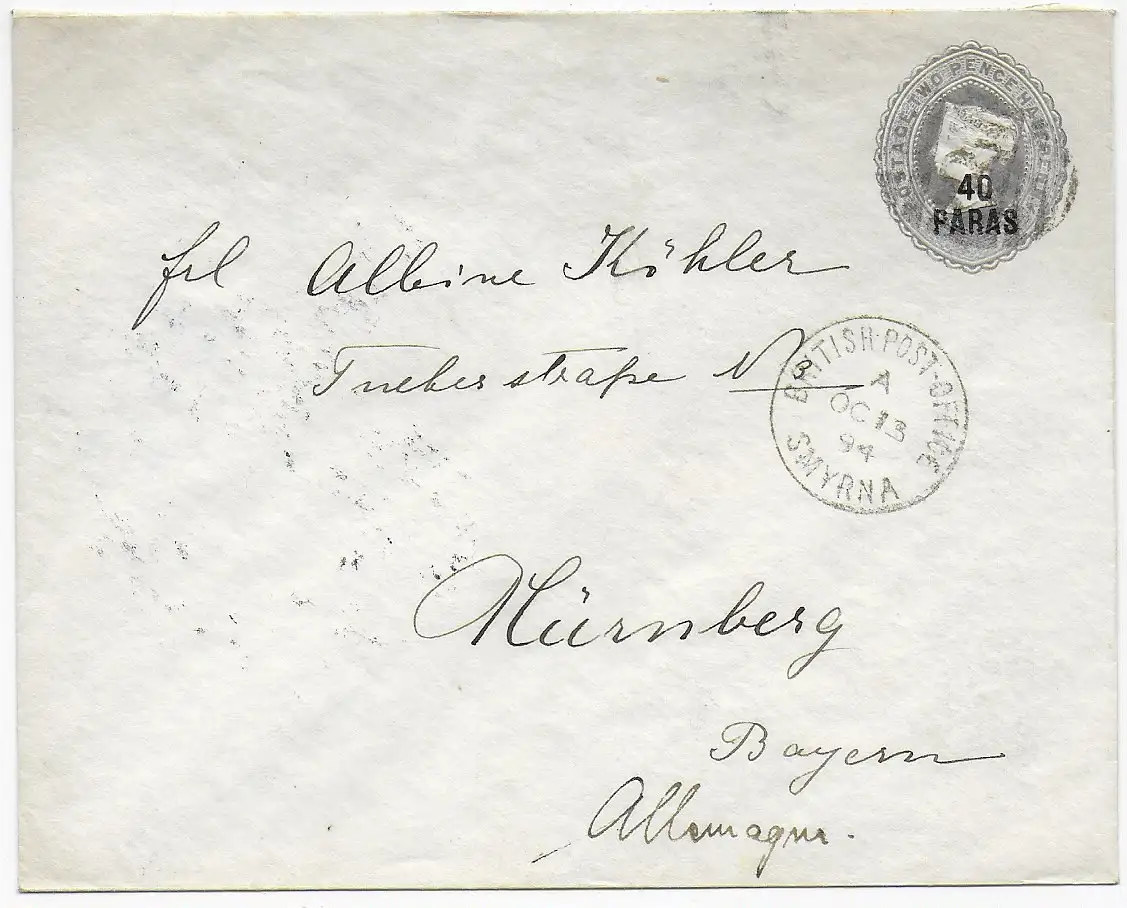 POSTAGE TWO PENCE HALFPENNY
40
PARAS
frl Albine Köhler
Tucherstraße N 3
BRITISH·POST-OFFICE
A
OC 13
94
SMYRNA
Nürnberg
Bayern
Allemagne.